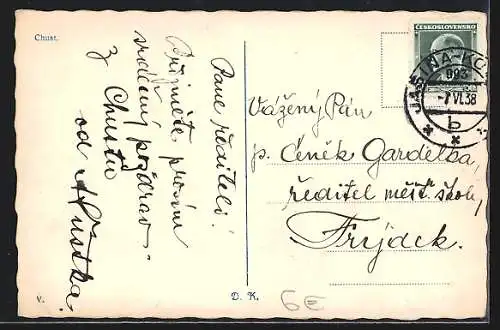 Chust.
Pane řediteli!
Přijměte prosím
srdečný pozdrav
z Chustu
od
V.
D. K.
ČESKOSLOVENSKO
-7 VI. 38
b
Vážený Pán
p. Čeněk Gardelka,
ředitel měšť. školy
Frýdek.
6€